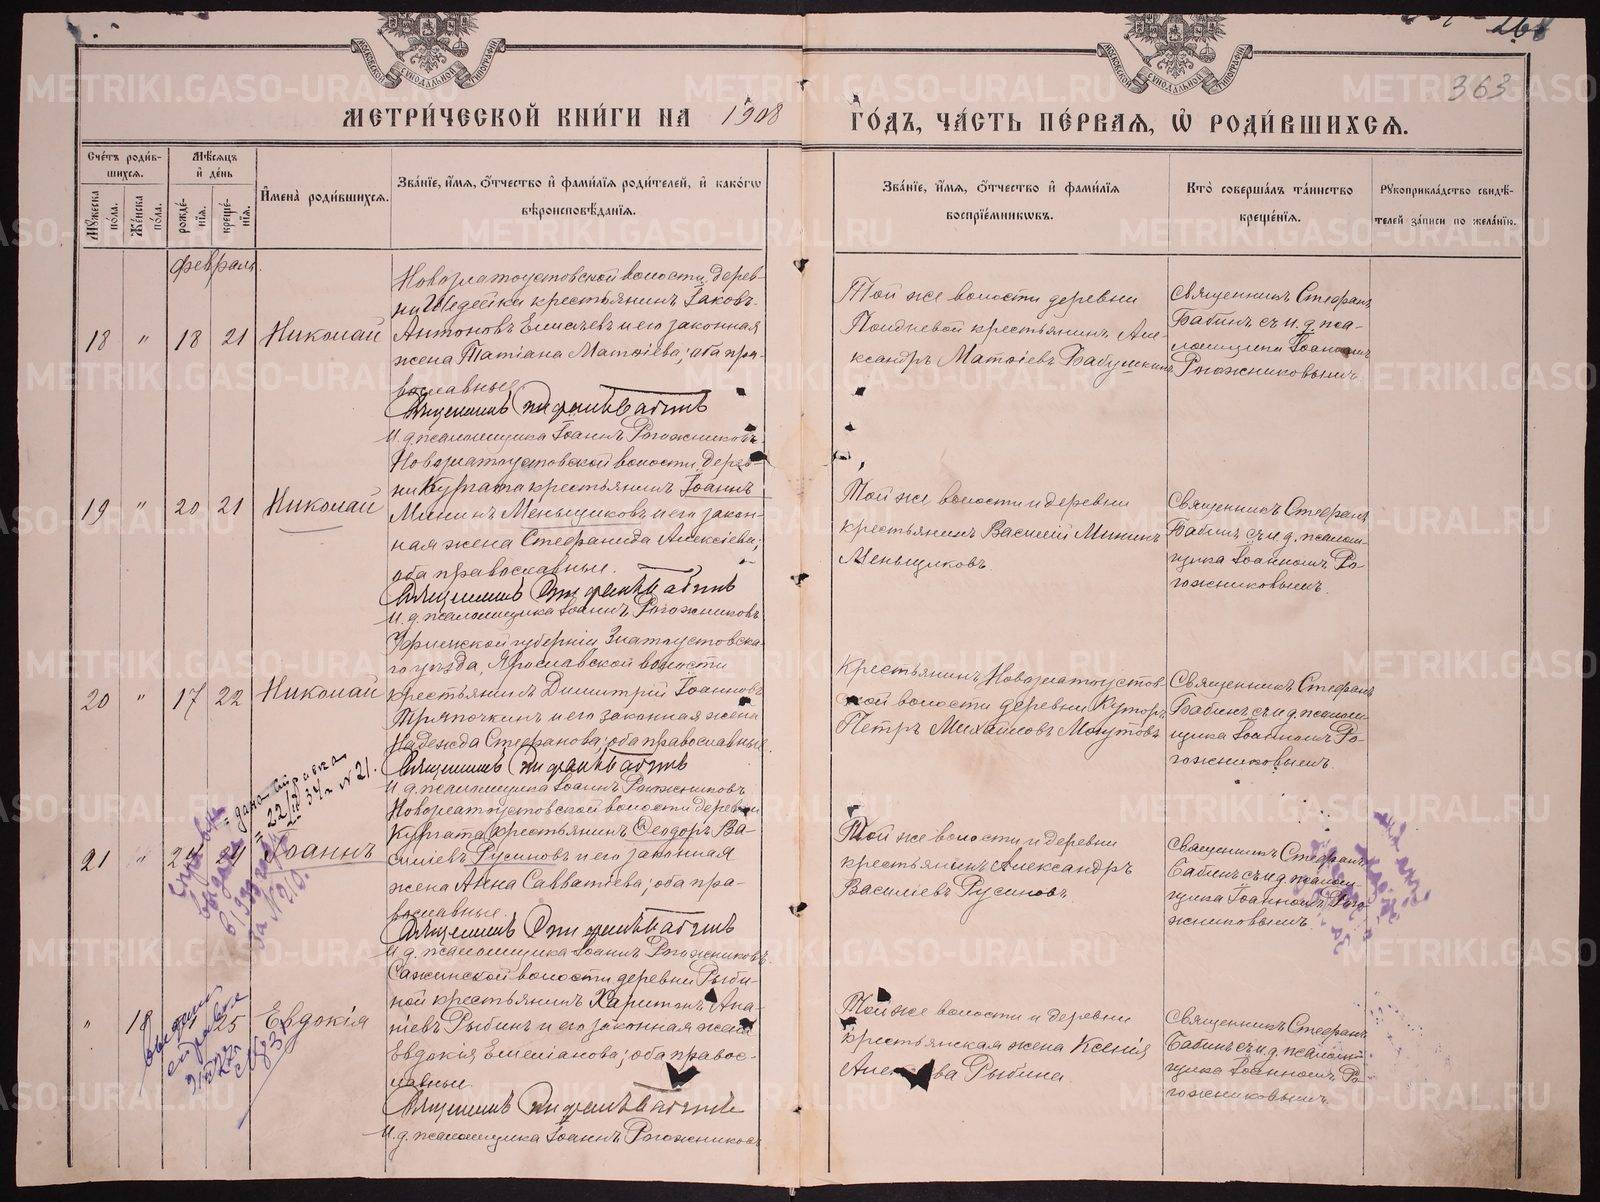 268
363
МЕТРИ́ЧЕСКОЙ КНИ́ГИ НА 1908 ГО́ДЪ, ЧА́СТЬ ПЕ́РВАЯ, Ѡ҆ РОДИ́ВШИХСѦ.
Сче́тъ роди́вшихсѧ.
Мꙋ́жеска по́ла.
Же́нска по́ла.
Мѣ́сѧцъ и҆ де́нь
рожде́нїѧ.
креще́нїѧ.
И҆мена̀ роди́вшихсѧ.
Зва́нїе, и҆́мѧ, ѻ҆́тчество и҆ фами́лїѧ роди́телей, и҆ како́гѡ
вѣроисповѣ́данїѧ.
Зва́нїе, и҆́мѧ, ѻ҆́тчество и҆ фами́лїѧ
воспрїе́мникѡвъ.
Кто̀ соверша́лъ та́инство
креще́нїѧ.
Рꙋкоприкла́дство свидѣ́-
телей за́писи по жела́нїю.
февраль.
18 " 18 21 Николай
Новозлатоустовской волости, дерев-
ни Шедейки крестьянинъ Іаковъ
Антоновъ Елисѣевъ и его законная
жена Татіана Матѳіева; оба пра-
вославные
Священникъ Стефанъ Бабинъ
И. д. псаломщика Іоаннъ Рогожниковъ
Той же волости деревни
Полдневой крестьянинъ Але-
ксандръ Матѳіевъ Бабушкинъ
Священникъ Стефанъ
Бабинъ съ и. д. пса-
ломщика Іоанномъ
Рогожниковымъ.
19 " 20 21 Николай
Новозлатоустовской волости, дерев-
ни Кургата крестьянинъ Іоаннъ
Мининъ Меньщиковъ и его закон-
ная жена Стефанида Алексіева;
оба православные.
Священникъ Стефанъ Бабинъ
И. д. псаломщика Іоаннъ Рогожниковъ
Той же волости и деревни
крестьянинъ Василій Мининъ
Меньщиковъ
Священникъ Стефанъ
Бабинъ съ и. д. псалом-
щика Іоанномъ Ро-
гожниковымъ.
20 " 17 22 Николай
Уфимской губерніи Златоустовска-
го уѣзда, Ярославской волости
крестьянинъ Димитрій Іоанновъ
Тряпочкинъ и его законная жена
Надежда Стефанова; оба православные.
Священникъ Стефанъ Бабинъ
И. д. псаломщика Іоаннъ Рогожниковъ
Крестьянинъ Новозлатоустов-
ской волости деревни
Петръ Михайловъ
Священникъ Стефанъ
Бабинъ съ и. д. псалом-
щика Іоанномъ Ро-
гожниковымъ.
дана справка
22/II 34 г. № 21.
21 " 24 Іоаннъ
Новозлатоустовской волости деревни
Кургата крестьянинъ Ѳеодоръ Ва-
силіевъ Русиновъ и его законная
жена Анна Савватіева; оба пра-
вославные.
Священникъ Стефанъ Бабинъ
И. д. псаломщика Іоаннъ Рогожниковъ
Той же волости и деревни
крестьянинъ Александръ
Василіевъ Русиновъ.
Священникъ Стефанъ
Бабинъ съ и. д. псалом-
щика Іоанномъ Рого-
жниковымъ.
" 18 25 Евдокія
Сажинской волости деревни Рыби-
ной крестьянинъ Харитонъ Ана-
ніевъ Рыбинъ и его законная жена
Евдокія Емеліанова; оба правос-
лавные
Священникъ Стефанъ Бабинъ
И. д. псаломщика Іоаннъ Рогожниковъ
Той же волости и деревни
крестьянская жена Ксенія
Рыбина
Священникъ Стефанъ
Бабинъ съ и. д. псалом-
щика Іоанномъ Ро-
гожниковымъ.
METRIKI.GASO-URAL.RU